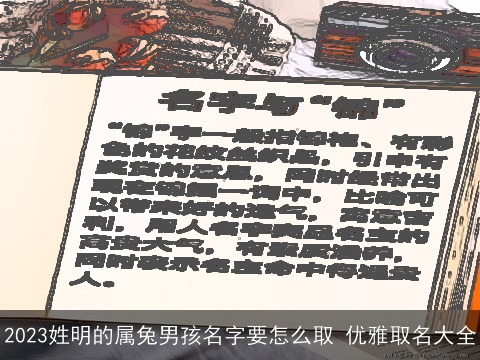 名字与“锦”
“锦”字一般指锦袍、有彩
色的花纹丝织品，引申有
奖赏的意思，同时经常出
现在锦鲤一词中，比喻可
以带来好的运气，寓意吉
利，用人名字突显名主的
高贵大气，有涵养，
同时表示名主命中得遇贵
人。
2023姓明的属兔男孩名字要怎么取 优雅取名大全